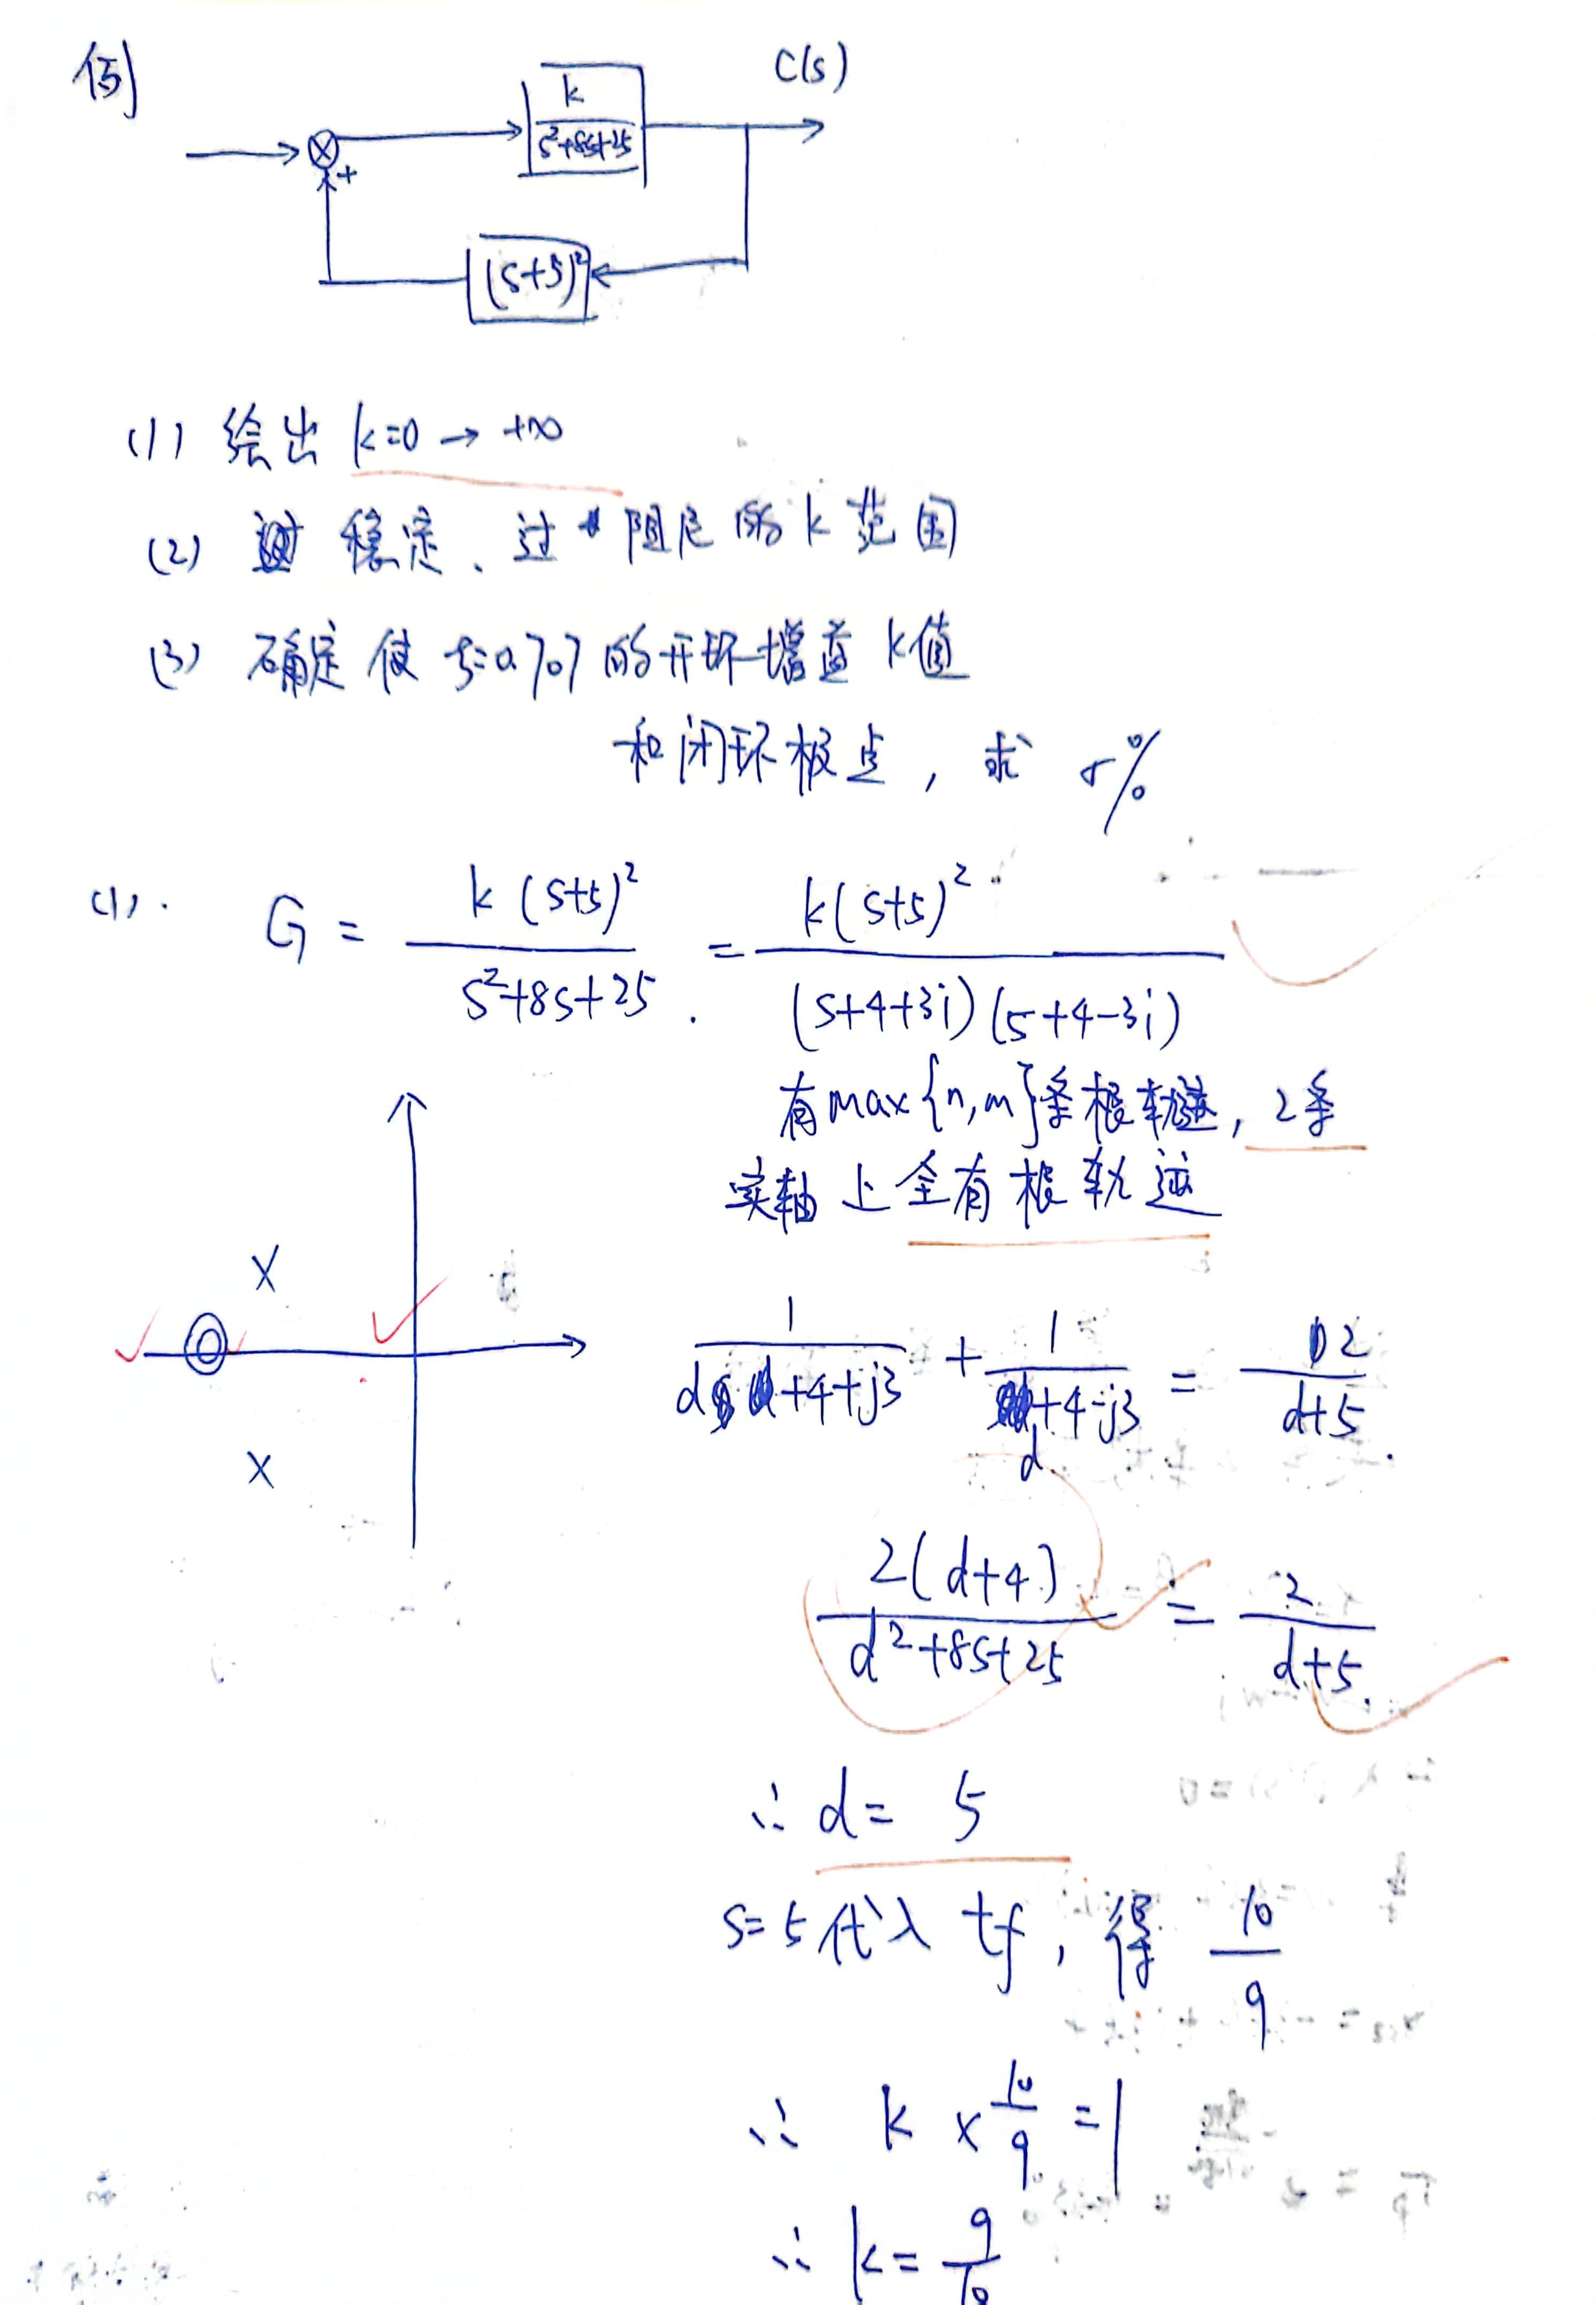 例
C(s)
k
s²+8s+25
+
(s+5)²
(1) 绘出 k=0 → +∞
(2) 稳定、过阻尼的 k 范围
(3) 确定使 ξ=0.707 的开环增益 k值
和闭环极点, 求 σ%
(1). G = k(s+5)² / s²+8s+25 . = k(s+5)² / (s+4+3i)(s+4-3i)
有max{n,m}条根轨迹, 2条
实轴上全有根轨迹
1 / d+4+j3 + 1 / d+4-j3 = 2 / d+5 .
2(d+4) / d²+8s+25 = 2 / d+5 .
∴ d = 5
s=5 代入 tf, 得 10/9
∴ k × 10/9 = 1
∴ k = 9/10